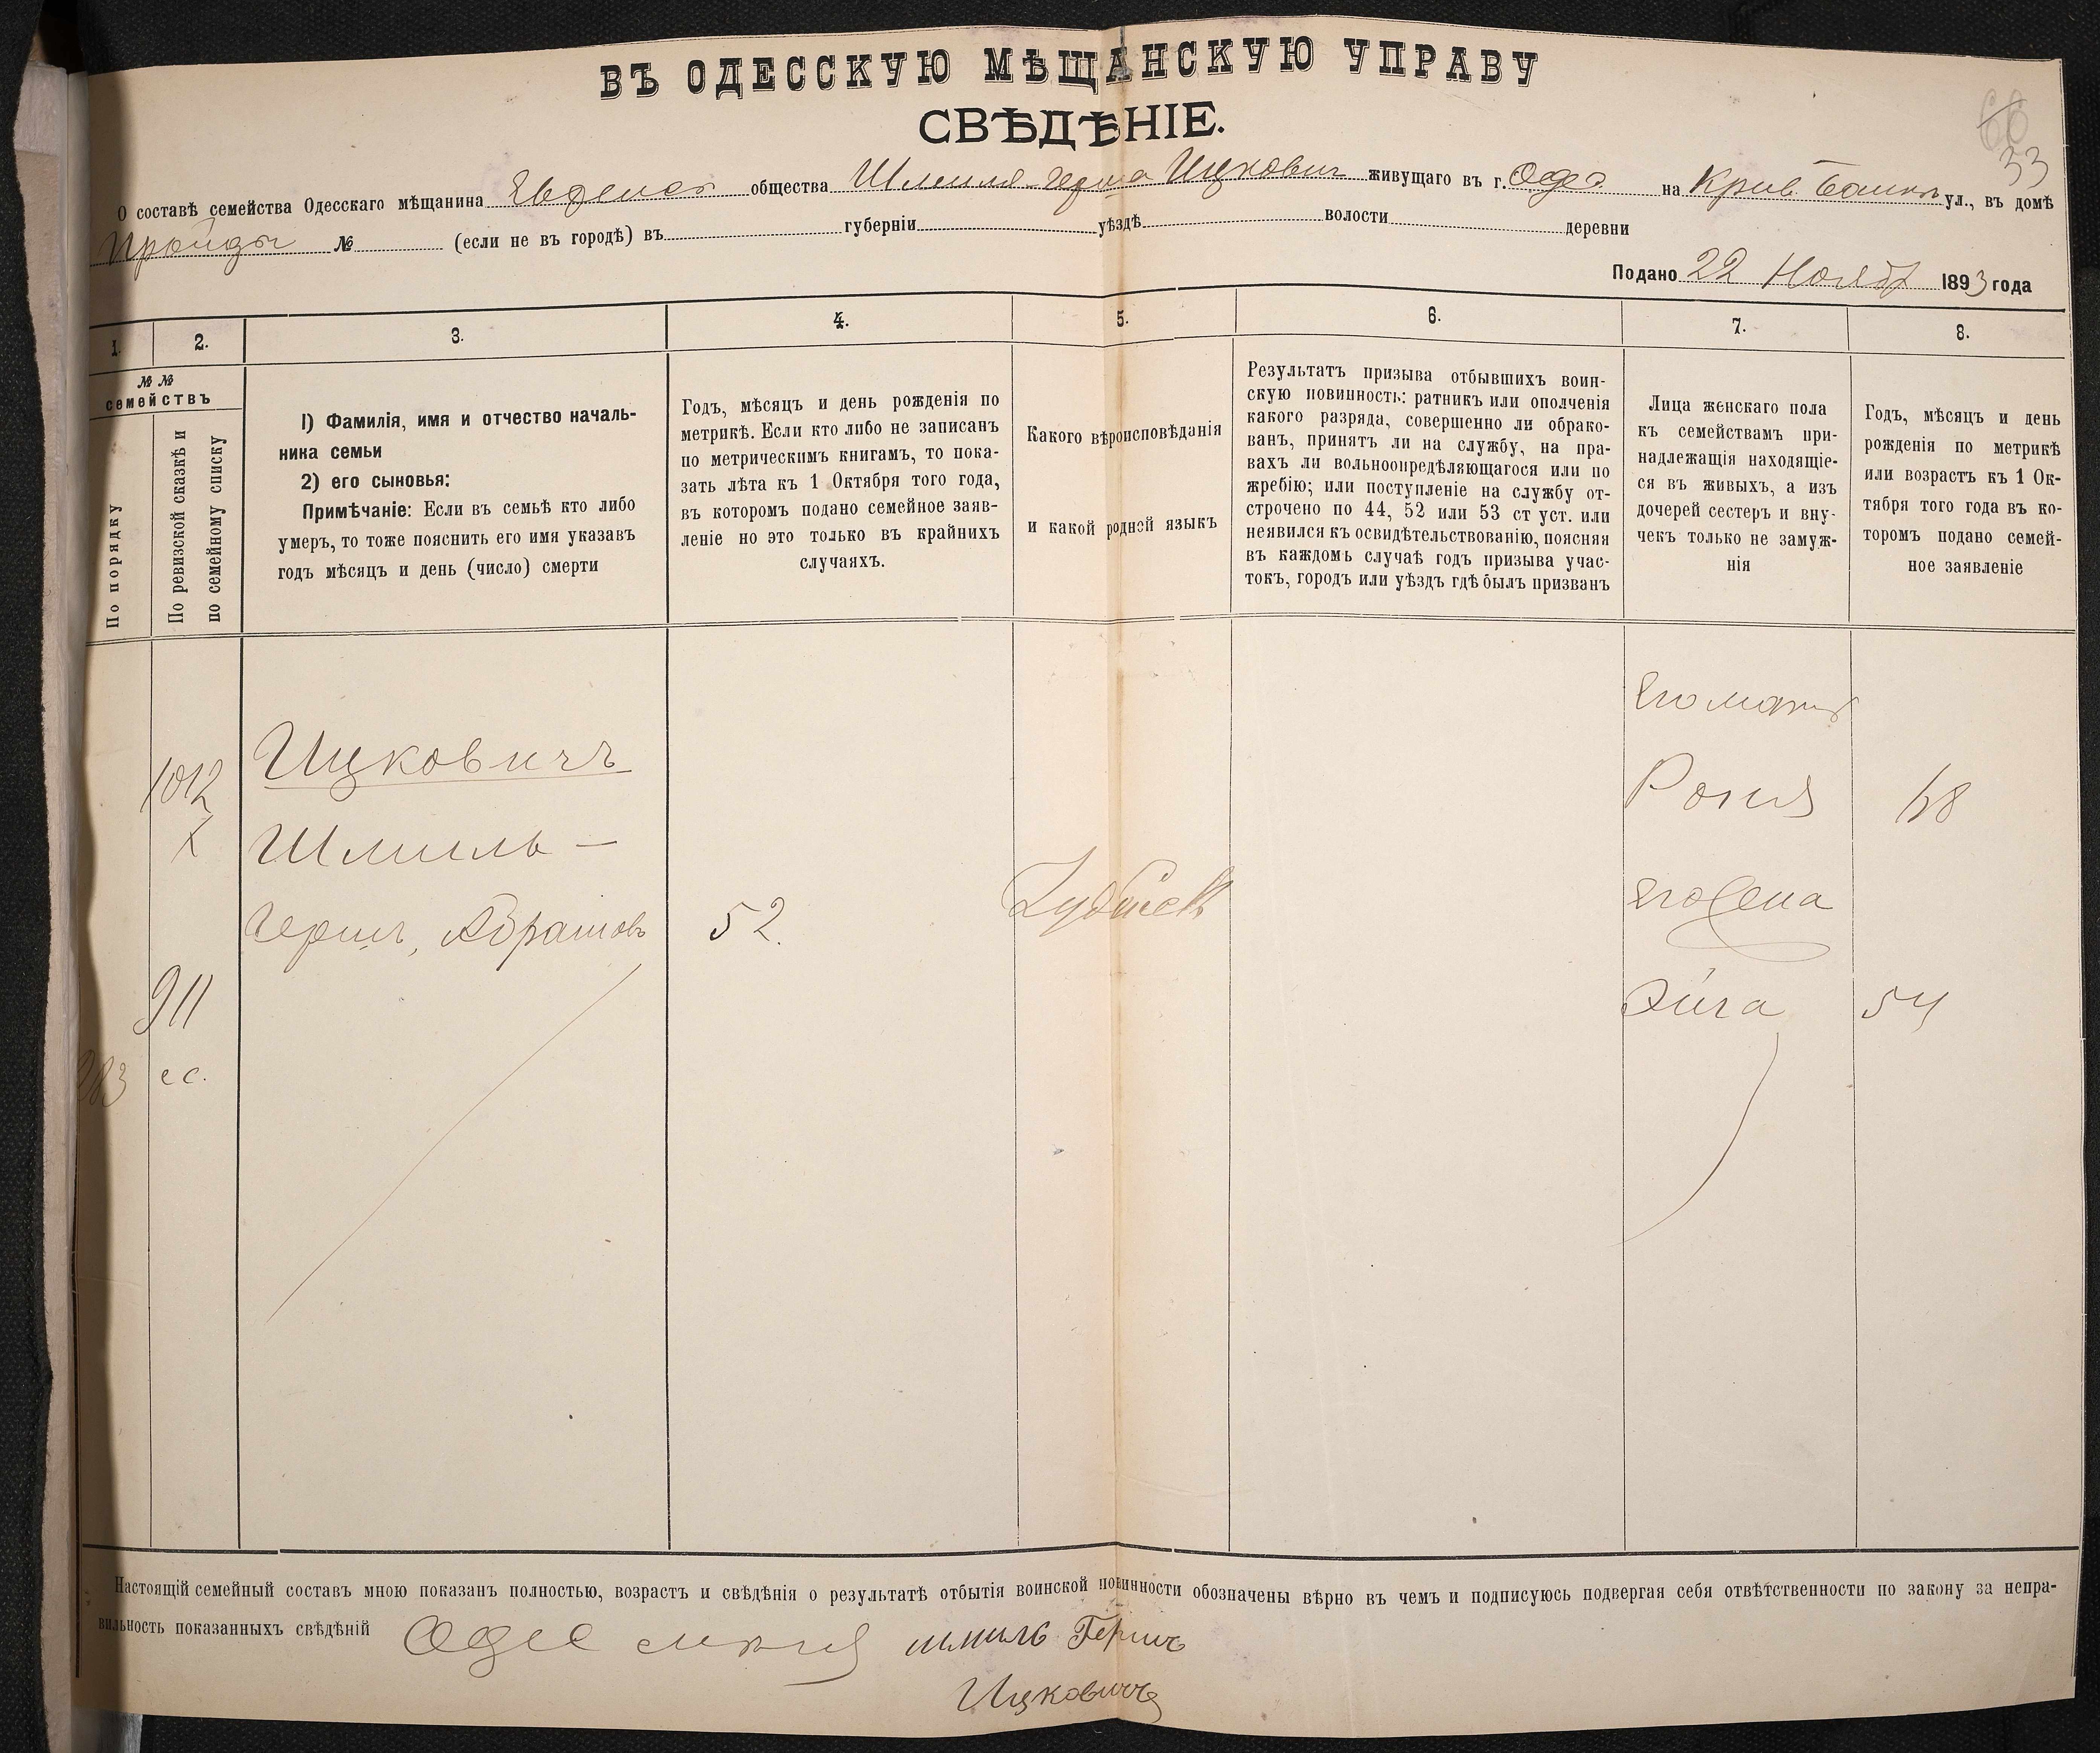 ВЪ ОДЕССКУЮ МѢЩАНСКУЮ УПРАВУ
СВѢДѢНІЕ.
66
33
О составѣ семейства Одесскаго мѣщанина общества Шмиля-Герша Ицкович живущаго въ г. на Крив. ул., въ домѣ
№ (если не въ городѣ) въ губерніи уѣздѣ волости деревни
Подано 22 Нояб 1893 года
1. 2. 3. 4. 5. 6. 7. 8.
№ №
семействъ
По порядку
По ревизской сказкѣ и
по семейному списку
1) Фамилія, имя и отчество началь-
ника семьи
2) его сыновья:
Примѣчаніе: Если въ семьѣ кто либо
умеръ, то тоже пояснить его имя указавъ
годъ мѣсяцъ и день (число) смерти
Годъ, мѣсяцъ и день рожденія по
метрикѣ. Если кто либо не записанъ
по метрическимъ книгамъ, то пока-
зать лѣта къ 1 Октября того года,
въ которомъ подано семейное заяв-
леніе но это только въ крайнихъ
случаяхъ.
Какого вѣроисповѣданія
и какой родной языкъ
Результатъ призыва отбывшихъ воин-
скую повинность: ратникъ или ополченія
какого разряда, совершенно ли обрако-
ванъ, принятъ ли на службу, на пра-
вахъ ли вольноопредѣляющагося или по
жребію; или поступленіе на службу от-
строчено по 44, 52 или 53 ст уст. или
неявился къ освидѣтельствованію, поясняя
въ каждомъ случаѣ годъ призыва учас-
токъ, городъ или уѣздъ гдѣ былъ призванъ
Лица женскаго пола
къ семействамъ при-
надлежащія находящіе-
ся въ живыхъ, а изъ
дочерей сестеръ и вну-
чекъ только не замуж-
нія
Годъ, мѣсяцъ и день
рожденія по метрикѣ
или возрастъ къ 1 Ок-
тября того года въ ко-
торомъ подано семей-
ное заявленіе
1012
911
с с.
Ицковичъ
Шмиль -
Гершъ, Абрамовъ
52.
Его мать
68
Его жена
54
Настоящій семейный составъ мною показанъ полностью, возрастъ и свѣдѣнія о результатѣ отбытія воинской повинности обозначены вѣрно въ чемъ и подписуюсь подвергая себя отвѣтственности по закону за непра-
вильность показанныхъ свѣдѣній шмиль Гершъ
Ицковичъ